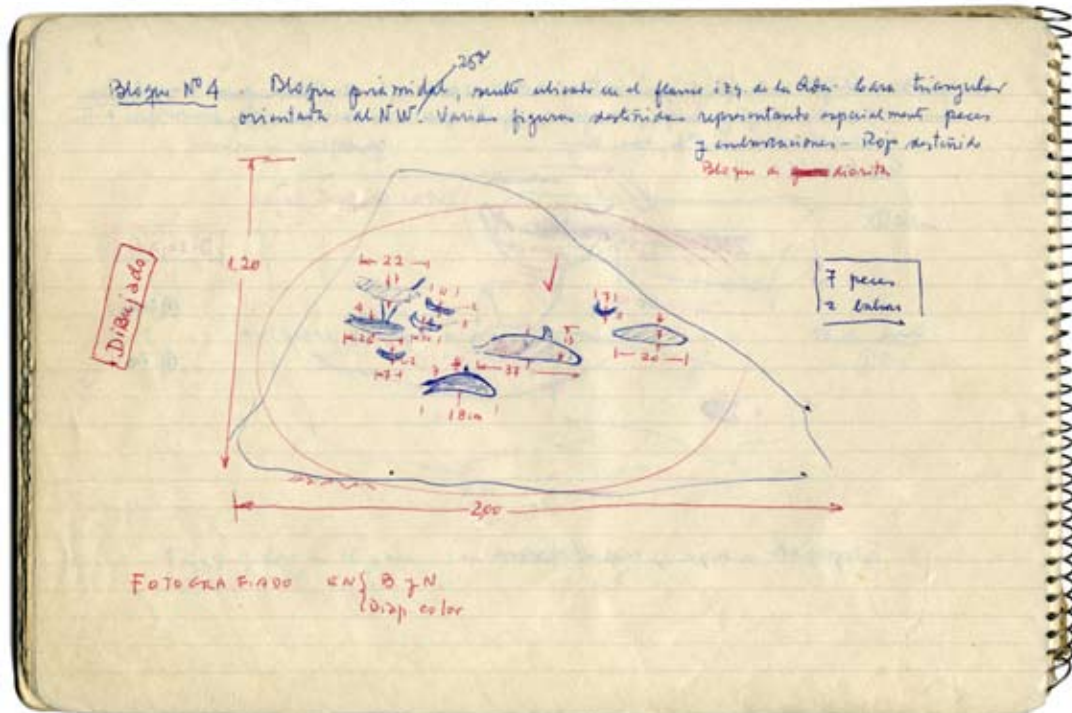 25º
Bloque Nº 4 Bloque piramidal, suelto ubicado en el flanco izq. de la Qda. Cara triangular
orientada al NW. Varias figuras desteñidas representando especialmente peces
y embarcaciones - Rojo desteñido
Bloque de diorita
1,20
Dibujado
22
7
18 cm
37
7
20
7 peces
2 balsas
2,00
FOTOGRAFIADO EN { B y N
Diap. color